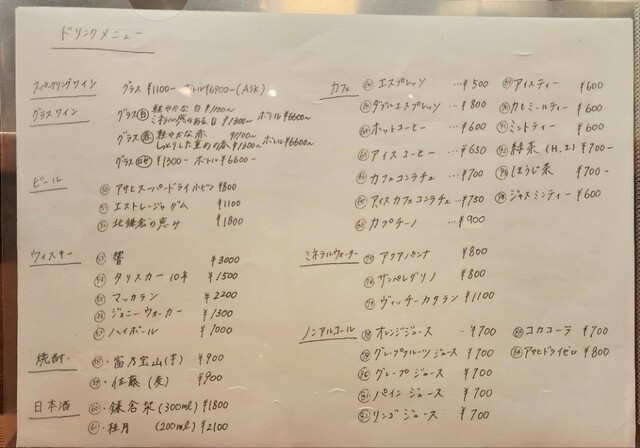 ドリンクメニュー
スパークリングワイン グラス ¥1100- ボトル ¥6900-(ASK)
グラスワイン グラス 白 軽やかな白 ¥1100~
ミネラル感のある白 ¥1300~ ボトル ¥6600~
グラス 赤 軽やかな赤 ¥1100~
しっとりした重めの赤 ¥1300~ ボトル ¥6600~
グラス ロゼ ¥1300- ボトル ¥6600-
ビール
50 アサヒスーパードライ小ビン ¥800
51 エストレージャダム ¥1100
52 北鎌倉の恵み ¥1800
ウィスキー 53 響 ¥3000
54 タリスカー 10年 ¥1500
55 マッカラン ¥2200
56 ジョニーウォーカー ¥1300
57 ハイボール ¥1000
焼酎 58 ・富乃宝山(芋) ¥900
59 ・佐藤(麦) ¥900
日本酒 60 ・鎌倉栞(300ml) ¥1800
61 ・桂月 (200ml) ¥2100
カフェ エスプレッソ …¥500
ダブルエスプレッソ …¥800
ホットコーヒー …¥600
アイスコーヒー …¥650
カフェコンラチェ …¥700
アイスカフェコンラチェ …¥750
カプチーノ …¥900
アイスティー ¥600
カモミールティー ¥600
ミントティー ¥600
緑茶 (H,I) ¥700-
ほうじ茶 ¥700-
ジャスミンティー ¥600
ミネラルウォーター アクアパンナ ¥800
サンペレグリノ ¥800
ヴィッチーカタラン ¥1100
ノンアルコール オレンジジュース - ¥700
グレープフルーツジュース ¥700
グレープジュース ¥700
パインジュース ¥700
リンゴジュース ¥700
コカコーラ ¥700
アサヒドライゼロ ¥800